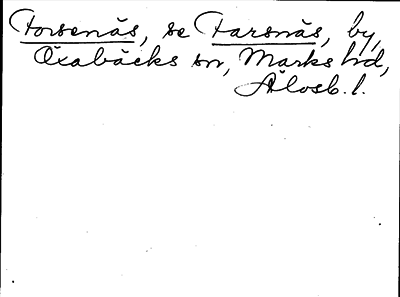 Torsenäs, se Tarsnäs, by,
Öxabäcks sn, Marks hd,
Älvsb. l.